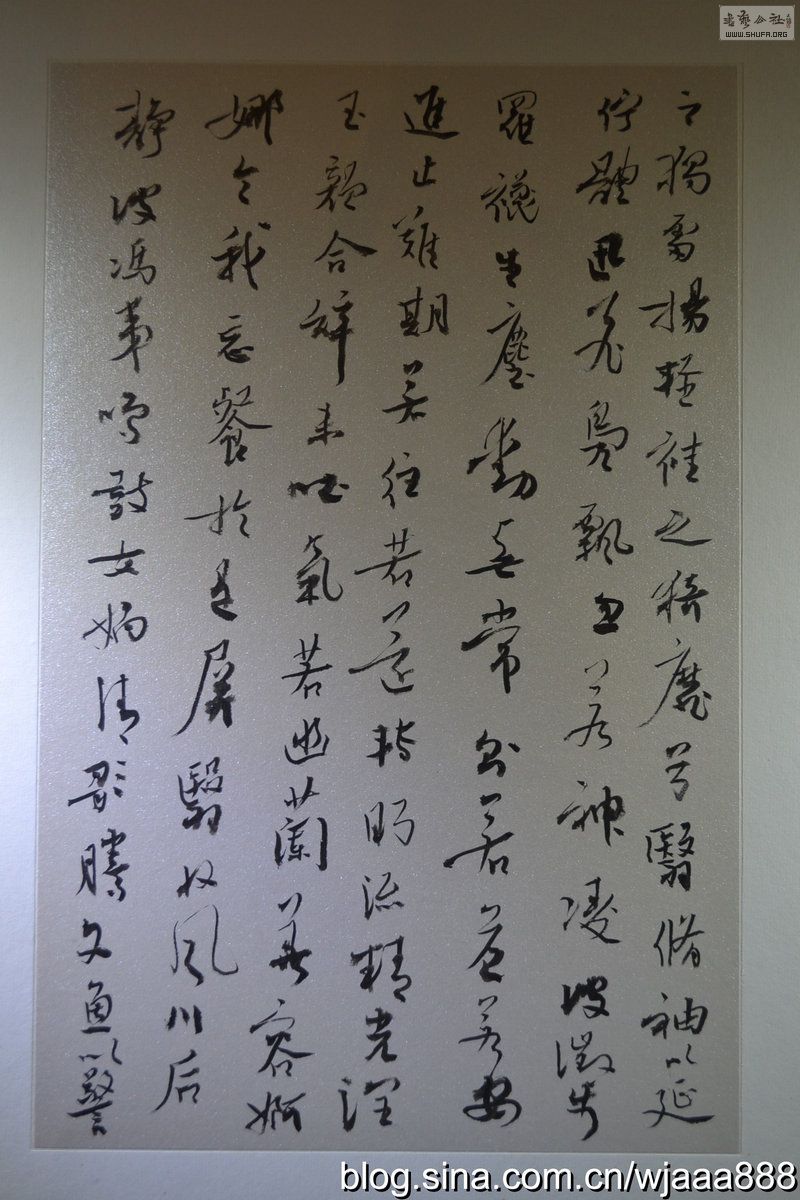 之獨處揚輕袿之猗靡兮翳脩袖以延
佇體迅飛鳧飄忽若神凌波微步
羅襪生塵動無常則若危若安
進止難期若往若還轉眄流精光潤
玉顏含辭未吐氣若幽蘭華容婀
娜令我忘餐於是屏翳收風川后
靜波馮夷鳴鼓女媧清歌騰文魚以警
書藝公社
WWW.SHUFA.ORG
blog.sina.com.cn/wjaaa888